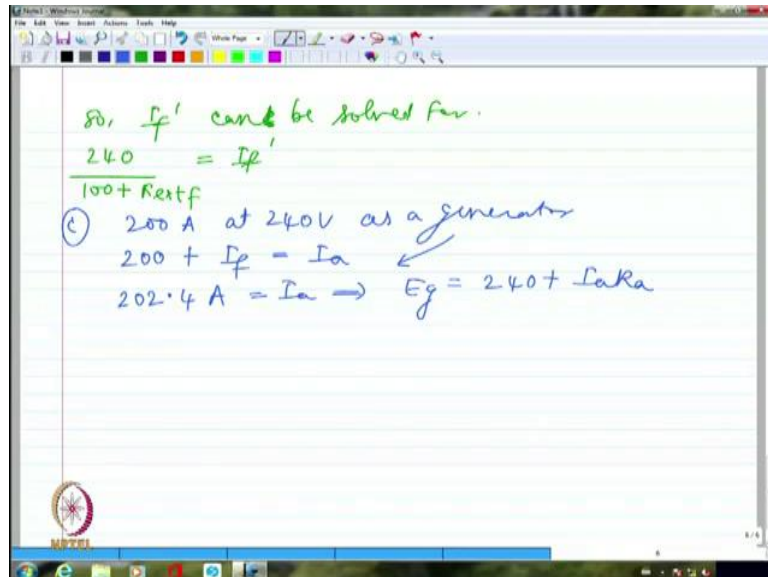 Note1 - Windows Journal
File Edit View Insert Actions Tools Help
Whole Page
so, If' can be solved for.
240 / 100 + Rextf = If'
(c) 200 A at 240V as a generator
200 + If = Ia
202.4 A = Ia → Eg = 240 + IaRa
NPTEL
6/6
6